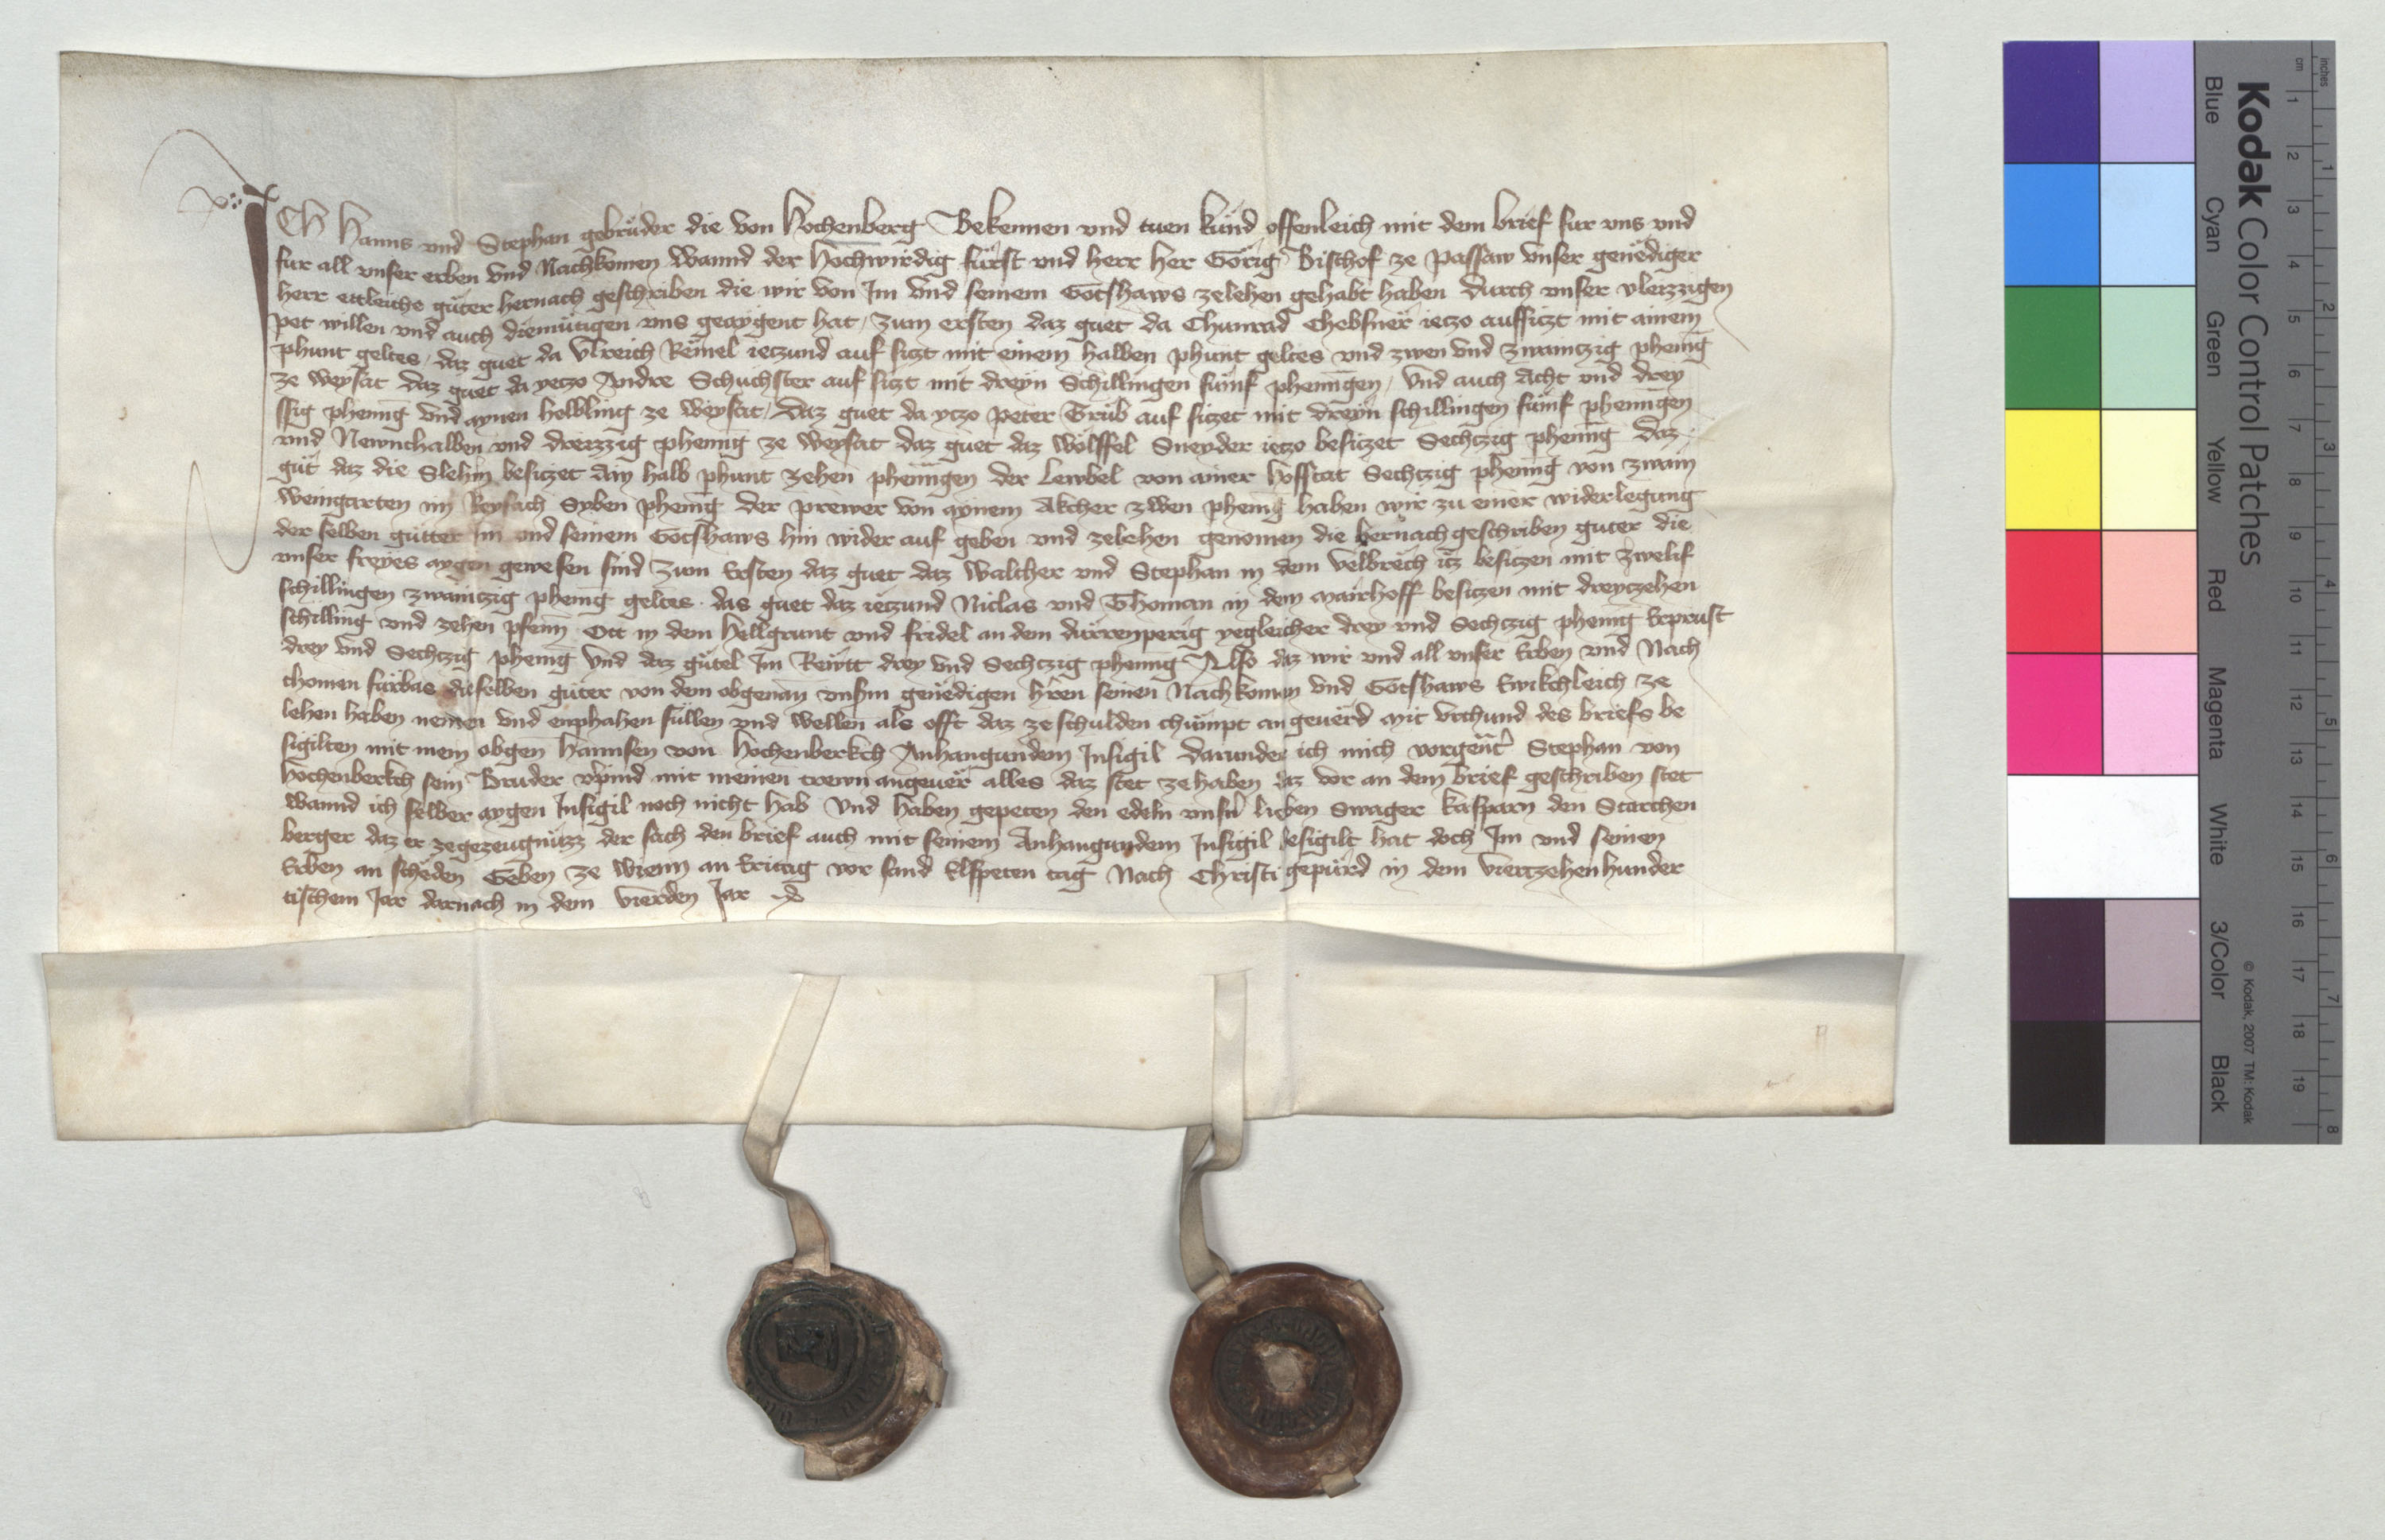 ICH Hanns vnd Stephan gebrüder die von Hochenberg Bekennen vnd tuen kund offenleich mit dem brief fur vns vnd
fur all vnser erben vnd Nachkomen Wannd der Hochwirdig fürst vnd herr her Görig Bischof ze Passaw vnser genediger
herr ettleiche güter hernach geschriben die wir von Im vnd seinem Gotshaws zelehen gehabt haben durch vnser vleizzigen
pet willen vnd auch diemütigen vns geaygent hat / zum ersten daz guet da Chunrad Chebsner ieczo aufsiczt mit ainem
phunt geltes / daz guet da Vlreich Remel ieczund auf siczt mit einem halben phunt geltes vnd zwen vnd zwainczig phenīg
ze weysat daz guet da yeczo Andre Schuchster auf siczt mit dreyn Schillingen fümf phennīgen / vnd auch Acht vnd drey
ssig phenīg vnd aynen helbling ze weysat / daz guet da yczo Peter Grüb auf siczet mit dreyn schillingen fümf phenīgen
vnd Newnthalben vnd dreizzig phenīg ze weysat daz guet daz Wölffel Sneyder ieczo besiczet Sechczig phenīg daz
güt daz die Slehin besiczet Ain halb phunt zehen phenīgen der Lewbel von ainer hofstat Sechczig phenīg von zwain
weingarten im Reysach Syben phenīg der prewer von aynem Akcher zwen phenīg haben wir zu einer widerlegung
der selben gütter Im vnd seinem Gotshaws hin wider auf geben vnd zelehen genomen die hernach geschriben guter die
vnser freyes aygen gewesen sind zum Ersten daz guet daz Walther vnd Stephan in dem Velbrech icz besiczen mit zwelif
schillingen zwainczig phenīg geltes. das guet daz ieczund Niclas vnd Thoman in dem mairhoff besiczen mit dreyczehen
schilling vnd zehen pfenī Ott in dem Hellgrunt vnd fridel an dem dürrenperig yegleicher drey vnd Sechczig phenīg Erprust
drey vnd Sechczig phenīg vnd daz gütel Im Rewtt drey vnd Sechczig phenīg Also daz wir vnd all vnser Erben vnd Nach
chomen fürbas dieselben güter von dem obgenan vnserm genedigen hren seinen Nachkomen vnd Gotshaws Ewikchleich ze
lehen haben nemen vnd enphahen süllen vnd wellen als offt daz ze schulden chümpt an geuerd mit vrchund des briefs be
sigilten mit mein obgen Hannsen von Hochenberkch Anhangundem Insigil darunder ich mich vorgent Stephan von
Hochenberkch sein Bruder vpind mit meinen trewn angeuer alles daz stet zehaben daz vor an dem brief geschriben stet
wannd ich selber aygen Insigil noch nicht hab vnd haben gepeten den edeln vnsn lieben Swager Kasparn den Starchen
berger daz er zegezeugnüzz der sach den brief auch mit seinem Anhangundem Insigil besigilt hat doch Im vnd seinen
Erben an scheden Geben ze Wienn an Eritag vor sand Elspeten tag Nach Christi gepürd in dem vierrzehenhunder
tischem Jar darnach in dem vierden Jar
Kodak Color Control Patches
Blue Cyan Green Yellow Red Magenta White 3/Color Black
© Kodak, 2007 TM: Kodak
inches 1 2 3 4 5 6 7 8
cm 1 2 3 4 5 6 7 8 9 10 11 12 13 14 15 16 17 18 19